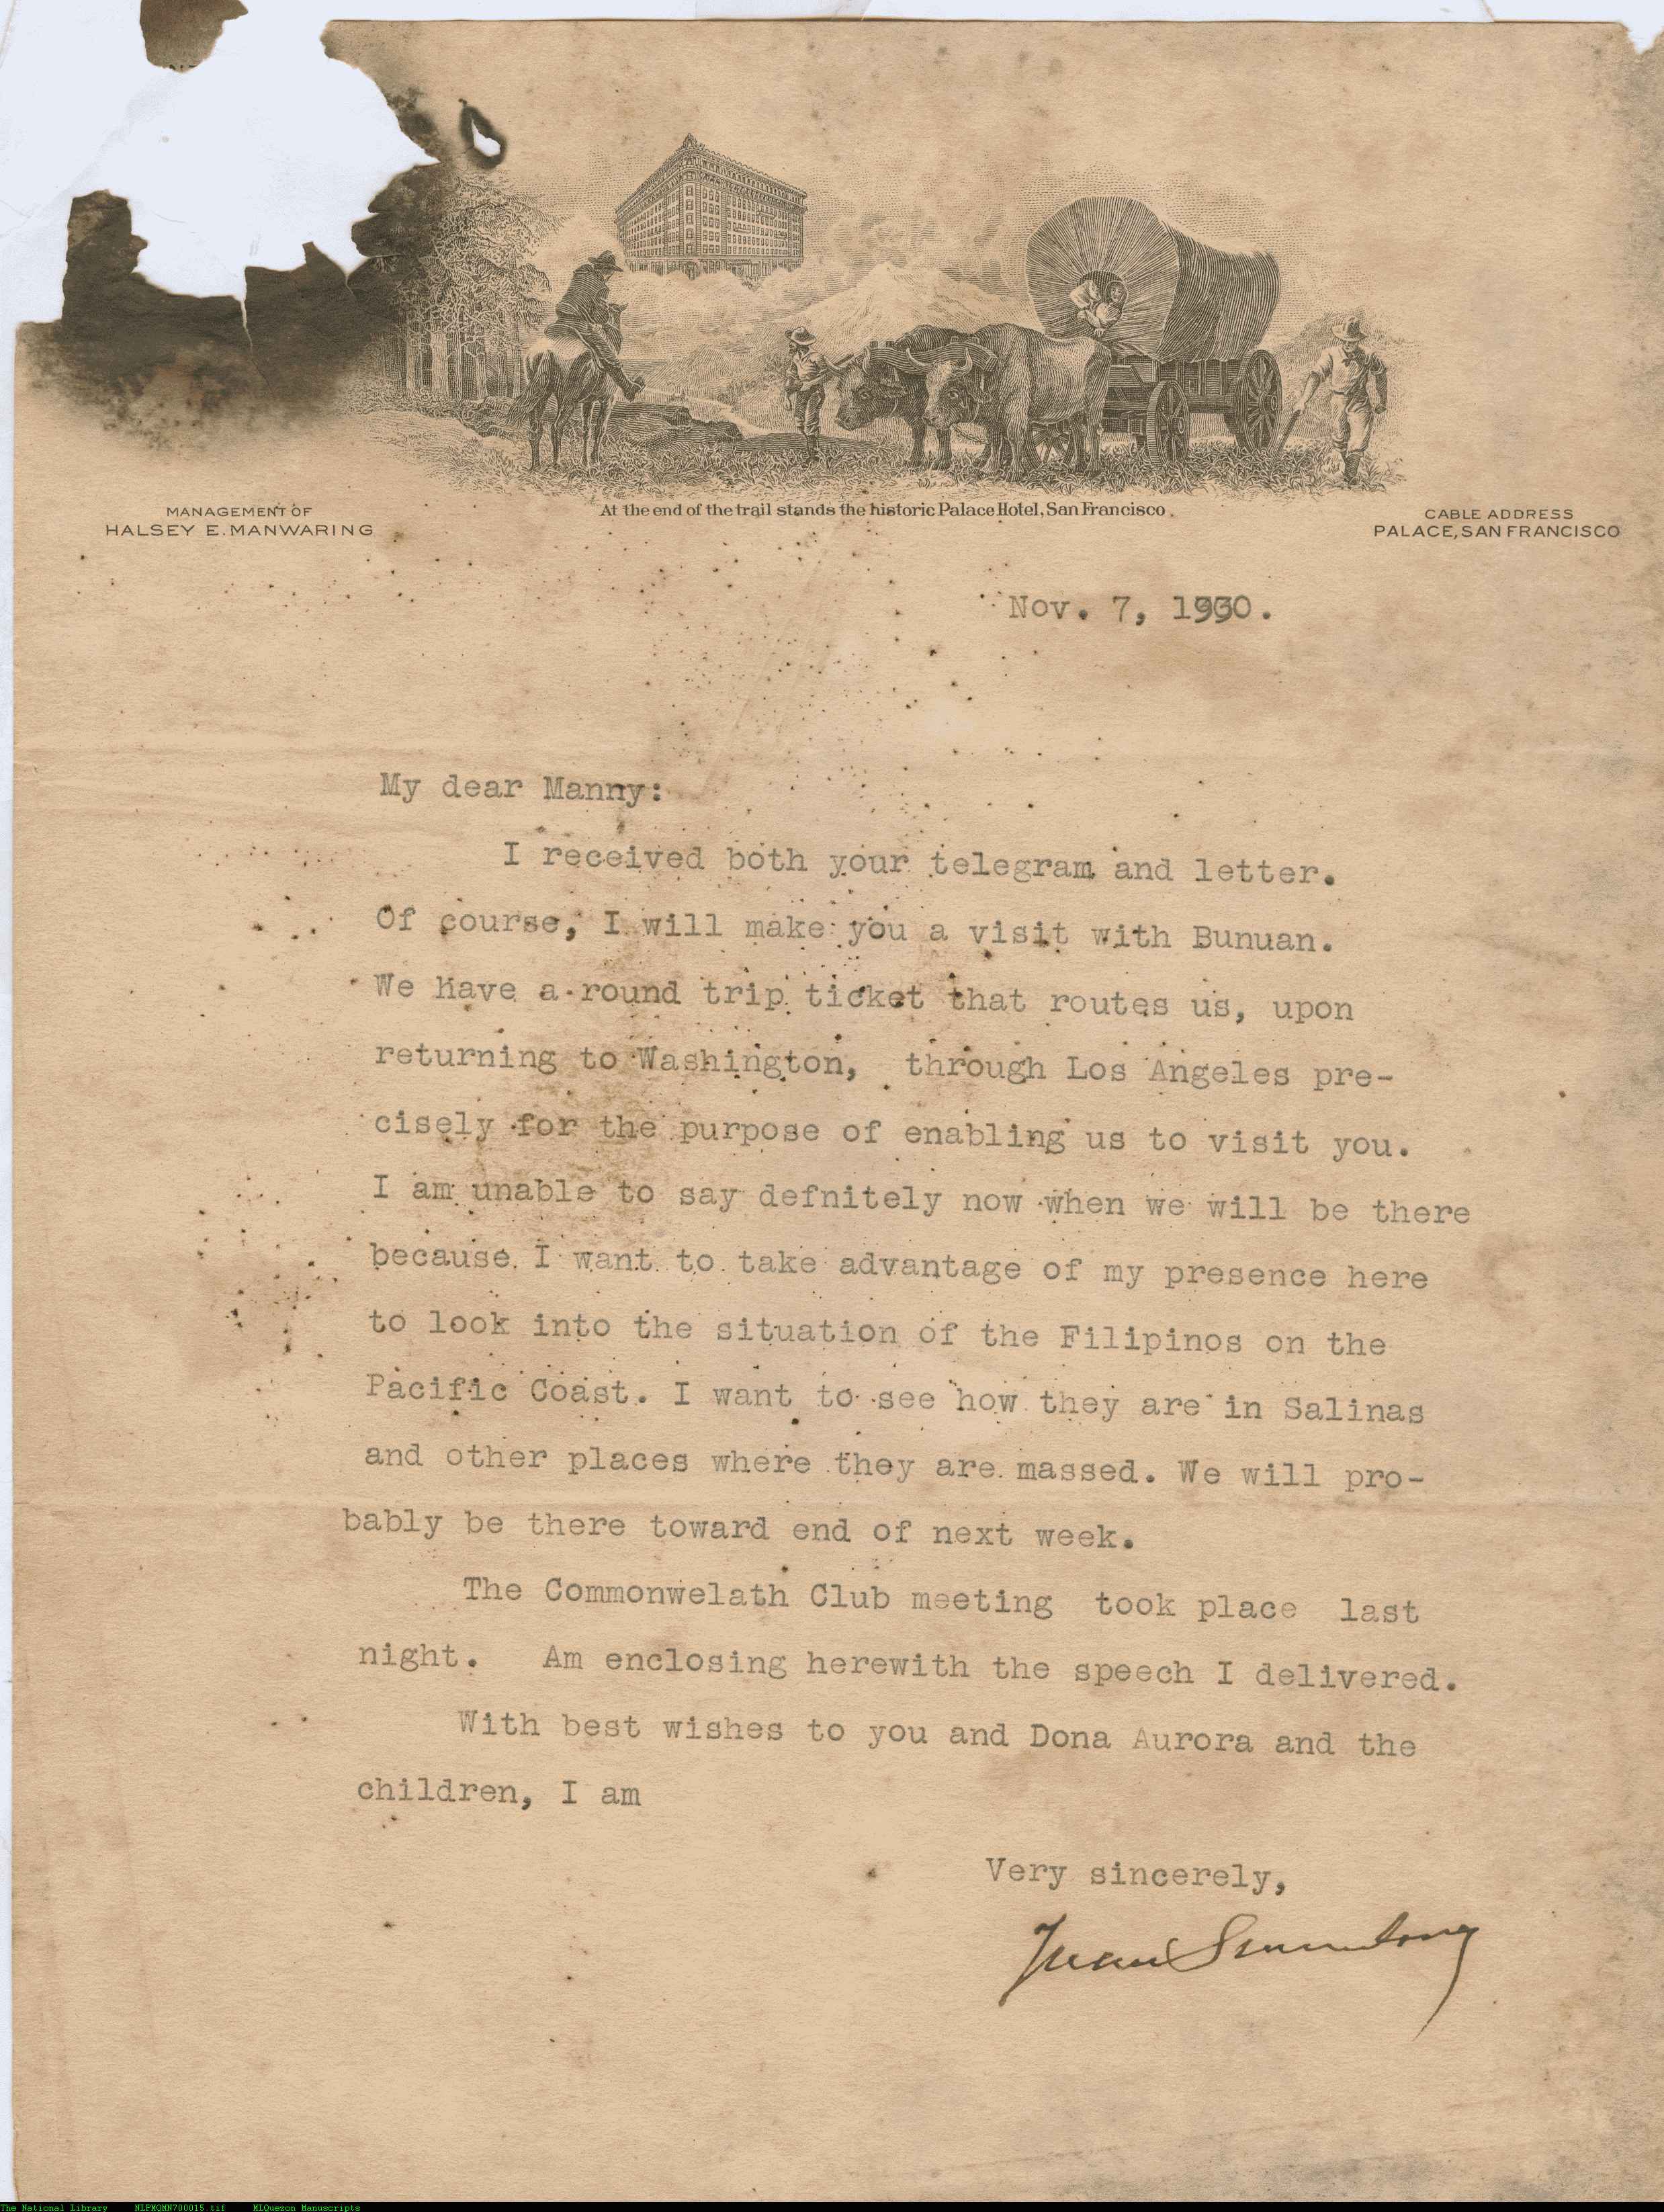 MANAGEMENT OF
HALSEY E. MANWARING
At the end of the trail stands the historic Palace Hotel, San Francisco.
CABLE ADDRESS
PALACE, SAN FRANCISCO
Nov. 7, 1930.
My dear Manny:
I received both your telegram and letter.
Of course, I will make you a visit with Bunuan.
We have a round trip ticket that routes us, upon
returning to Washington, through Los Angeles pre-
cisely for the purpose of enabling us to visit you.
I am unable to say defnitely now when we will be there
because I want to take advantage of my presence here
to look into the situation of the Filipinos on the
Pacific Coast. I want to see how they are in Salinas
and other places where they are massed. We will pro-
bably be there toward end of next week.
The Commonwelath Club meeting took place last
night. Am enclosing herewith the speech I delivered.
With best wishes to you and Dona Aurora and the
children, I am
Very sincerely,
Juan Sumulong
The National Library NLPMQMN700015.tif MLQuezon Manuscripts